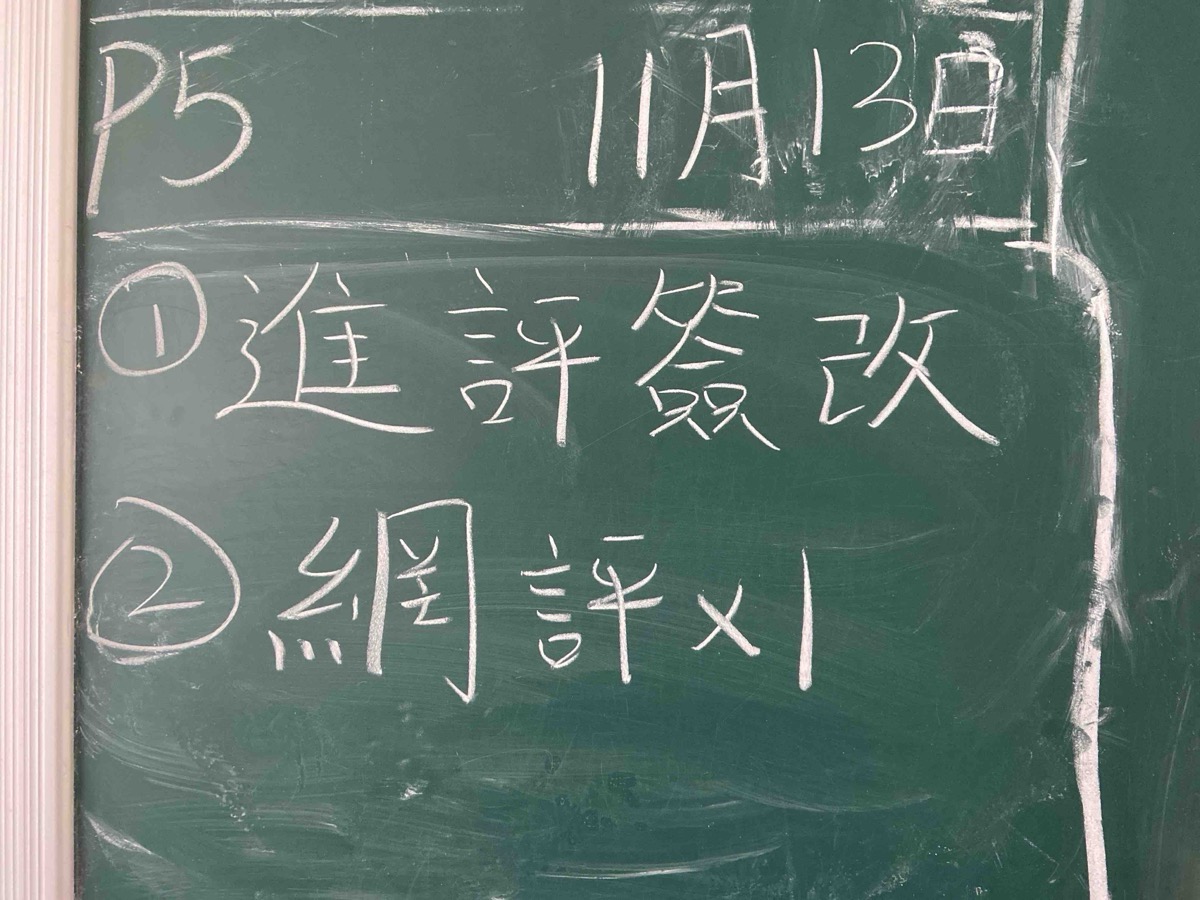 P5 11月13日
① 進評簽改
② 網評x1